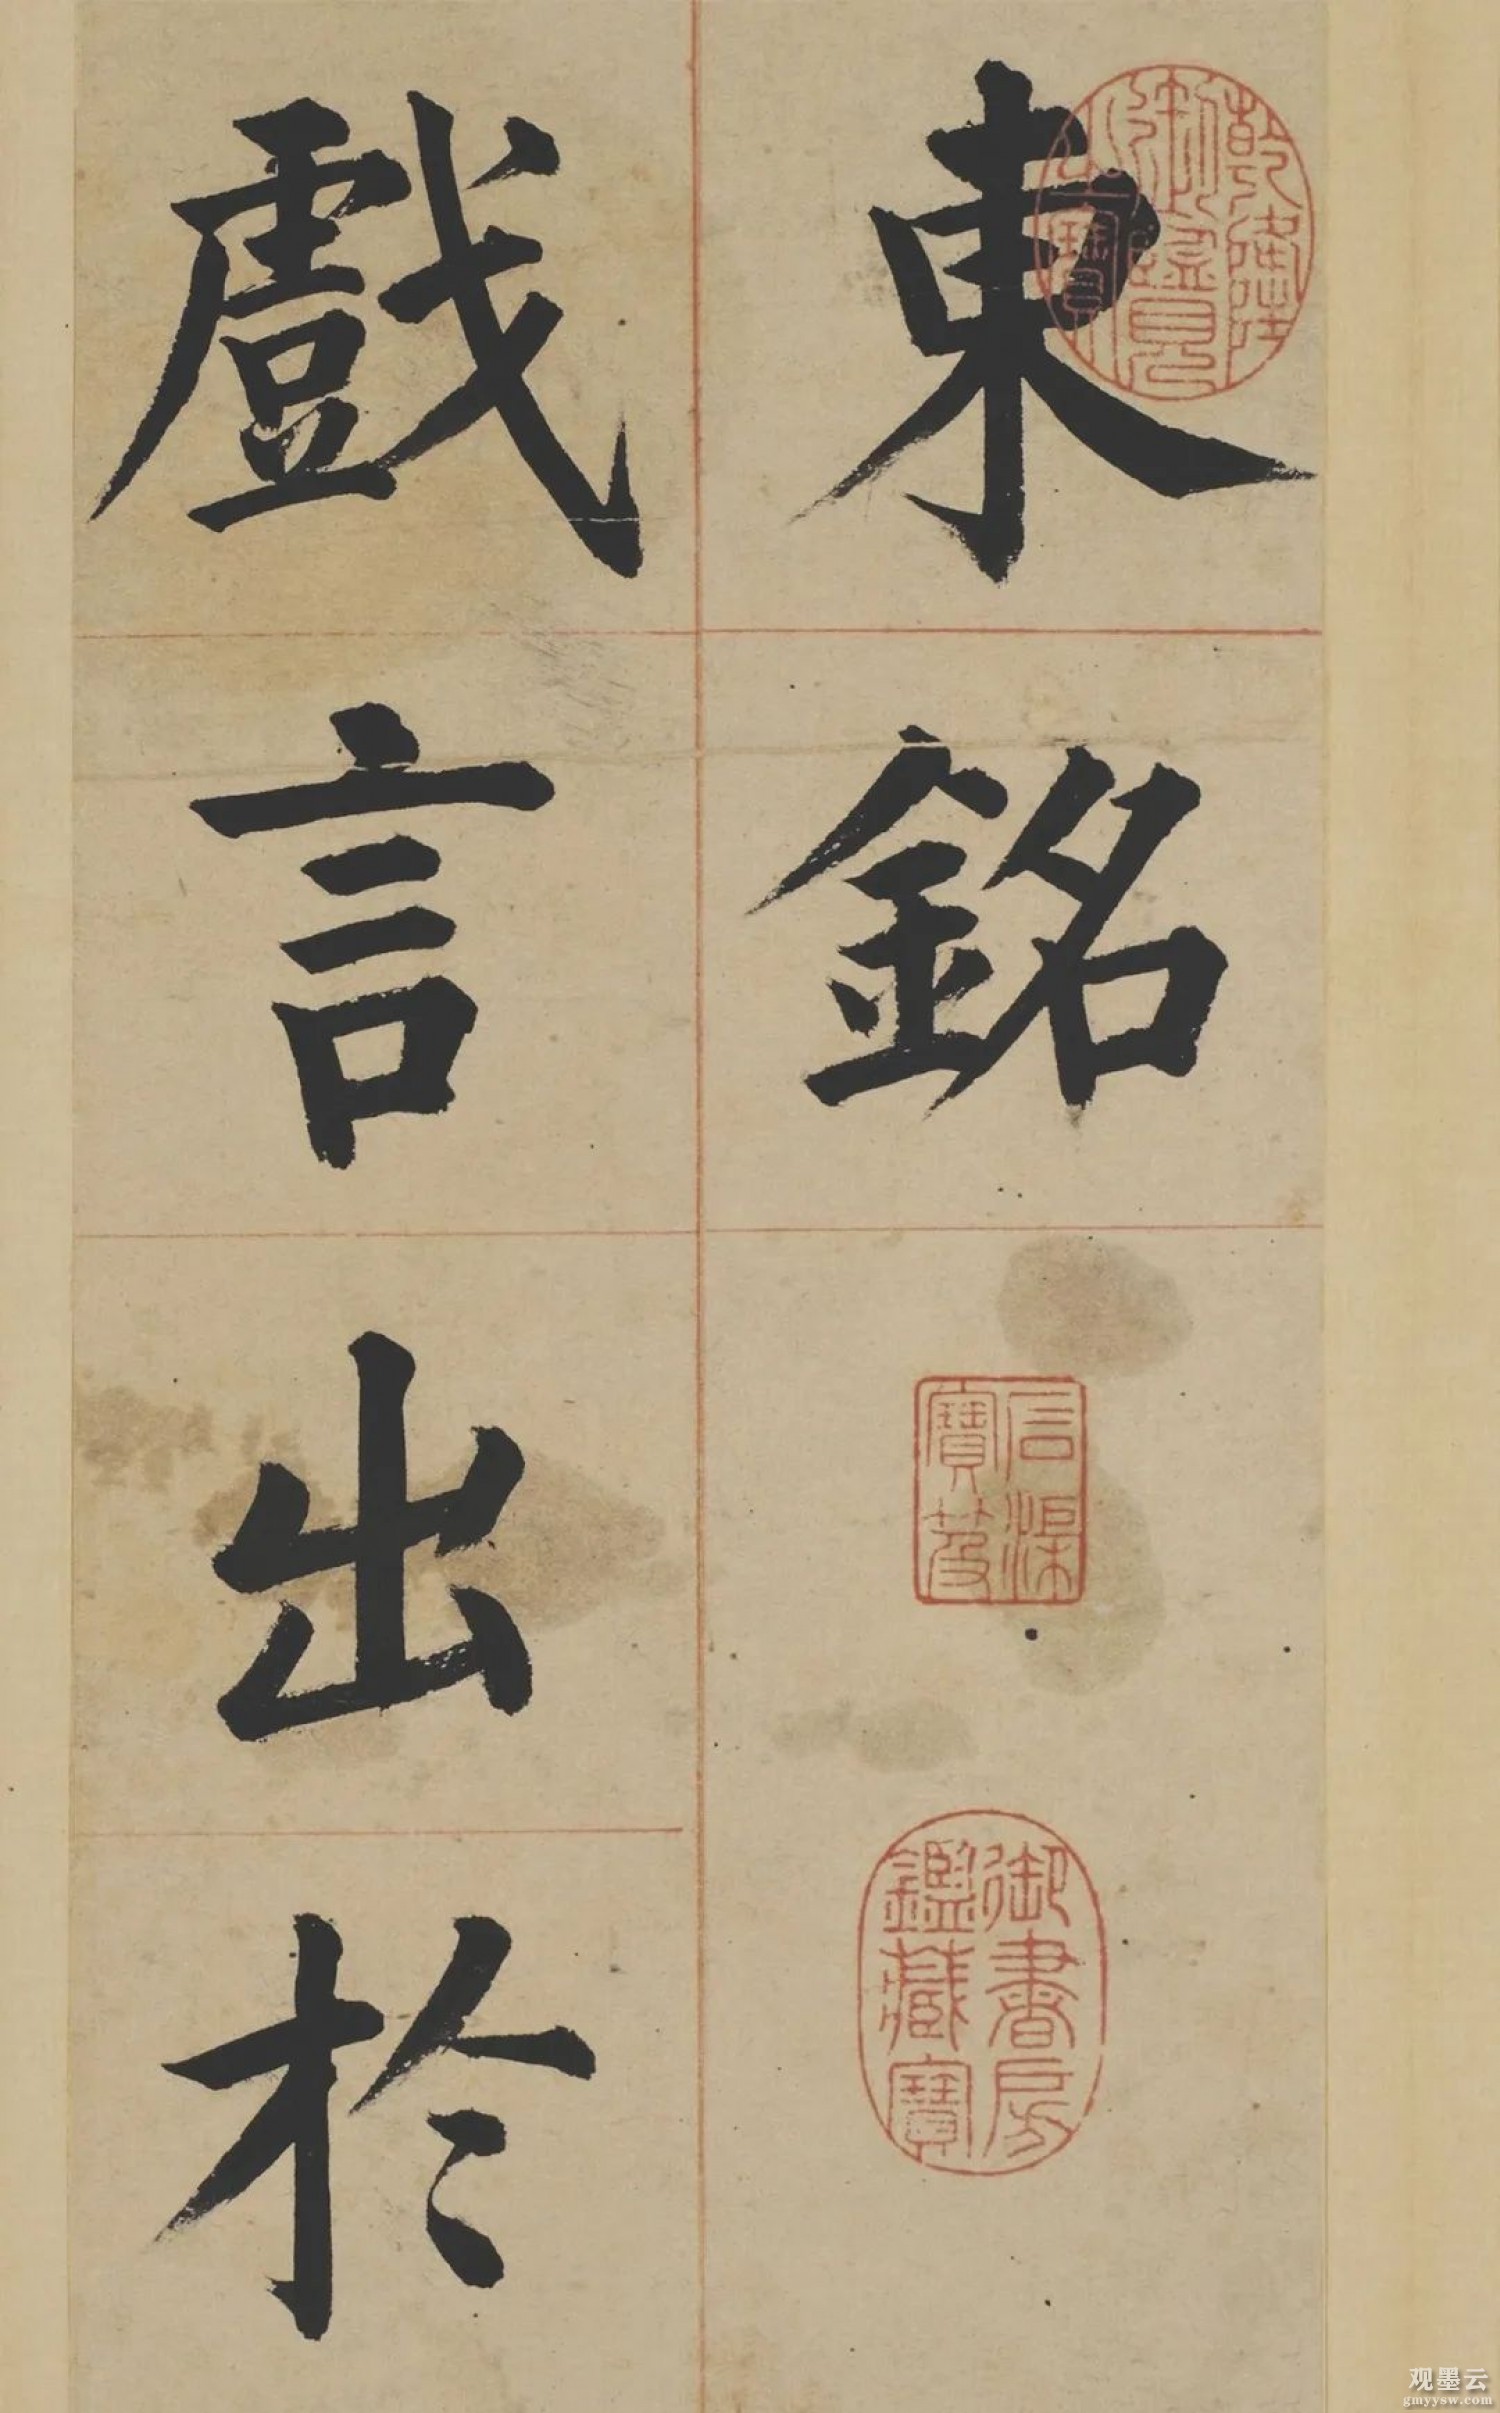 東銘
戲言出於
乾隆御覽之寶
御書房鑑藏寶
观墨云
gmyysw.com